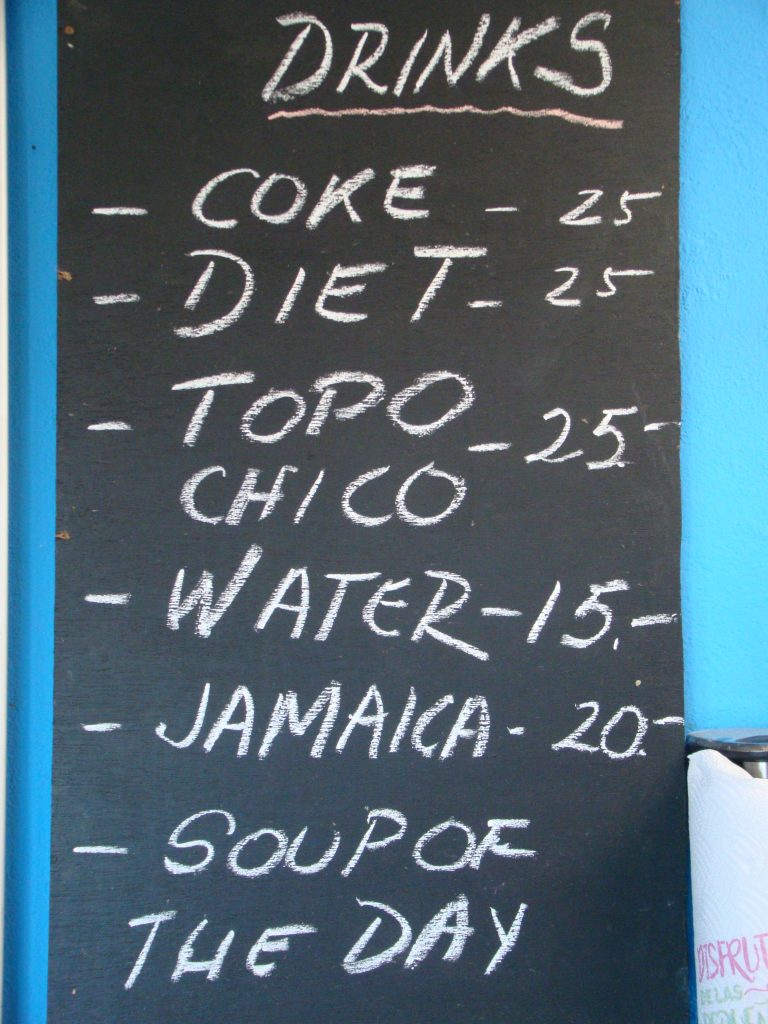 DRINKS
- COKE - 25
- DIET - 25
- TOPO
CHICO - 25.-
- WATER - 15.-
- JAMAICA - 20.-
- SOUP OF
THE DAY
DISFRUT
DE LAS